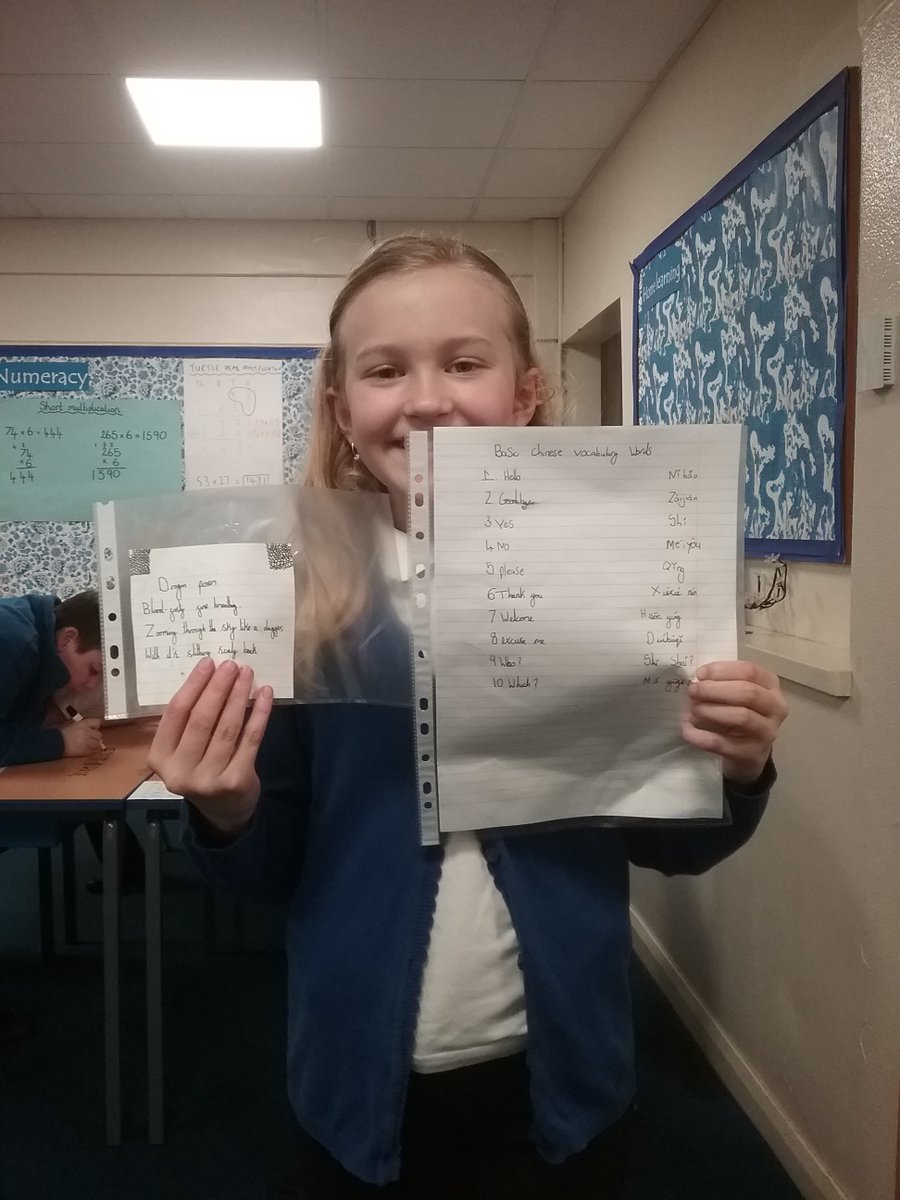 Numeracy
Short multiplication
74 x 6 = 444
265 x 6 = 1590
74
x 6
444
265
x 6
1590
53 x 27 = 1431
Home learning
Dragon poem
Blood-gusty fire breathing,
Zooming through the sky like a dagger,
With it's slithing scaly back
Basc chinese vocabulary Words
1. Hello Nǐ hǎo
2. Goodbye Zàijiàn
3 Yes Shì
4 No Méiyǒu
5 please Qǐng
6 Thank you
7 Welcome Huān yíng
8 excuse me Duìbùqǐ
9 Who? Shì Shuí?
10 Which?